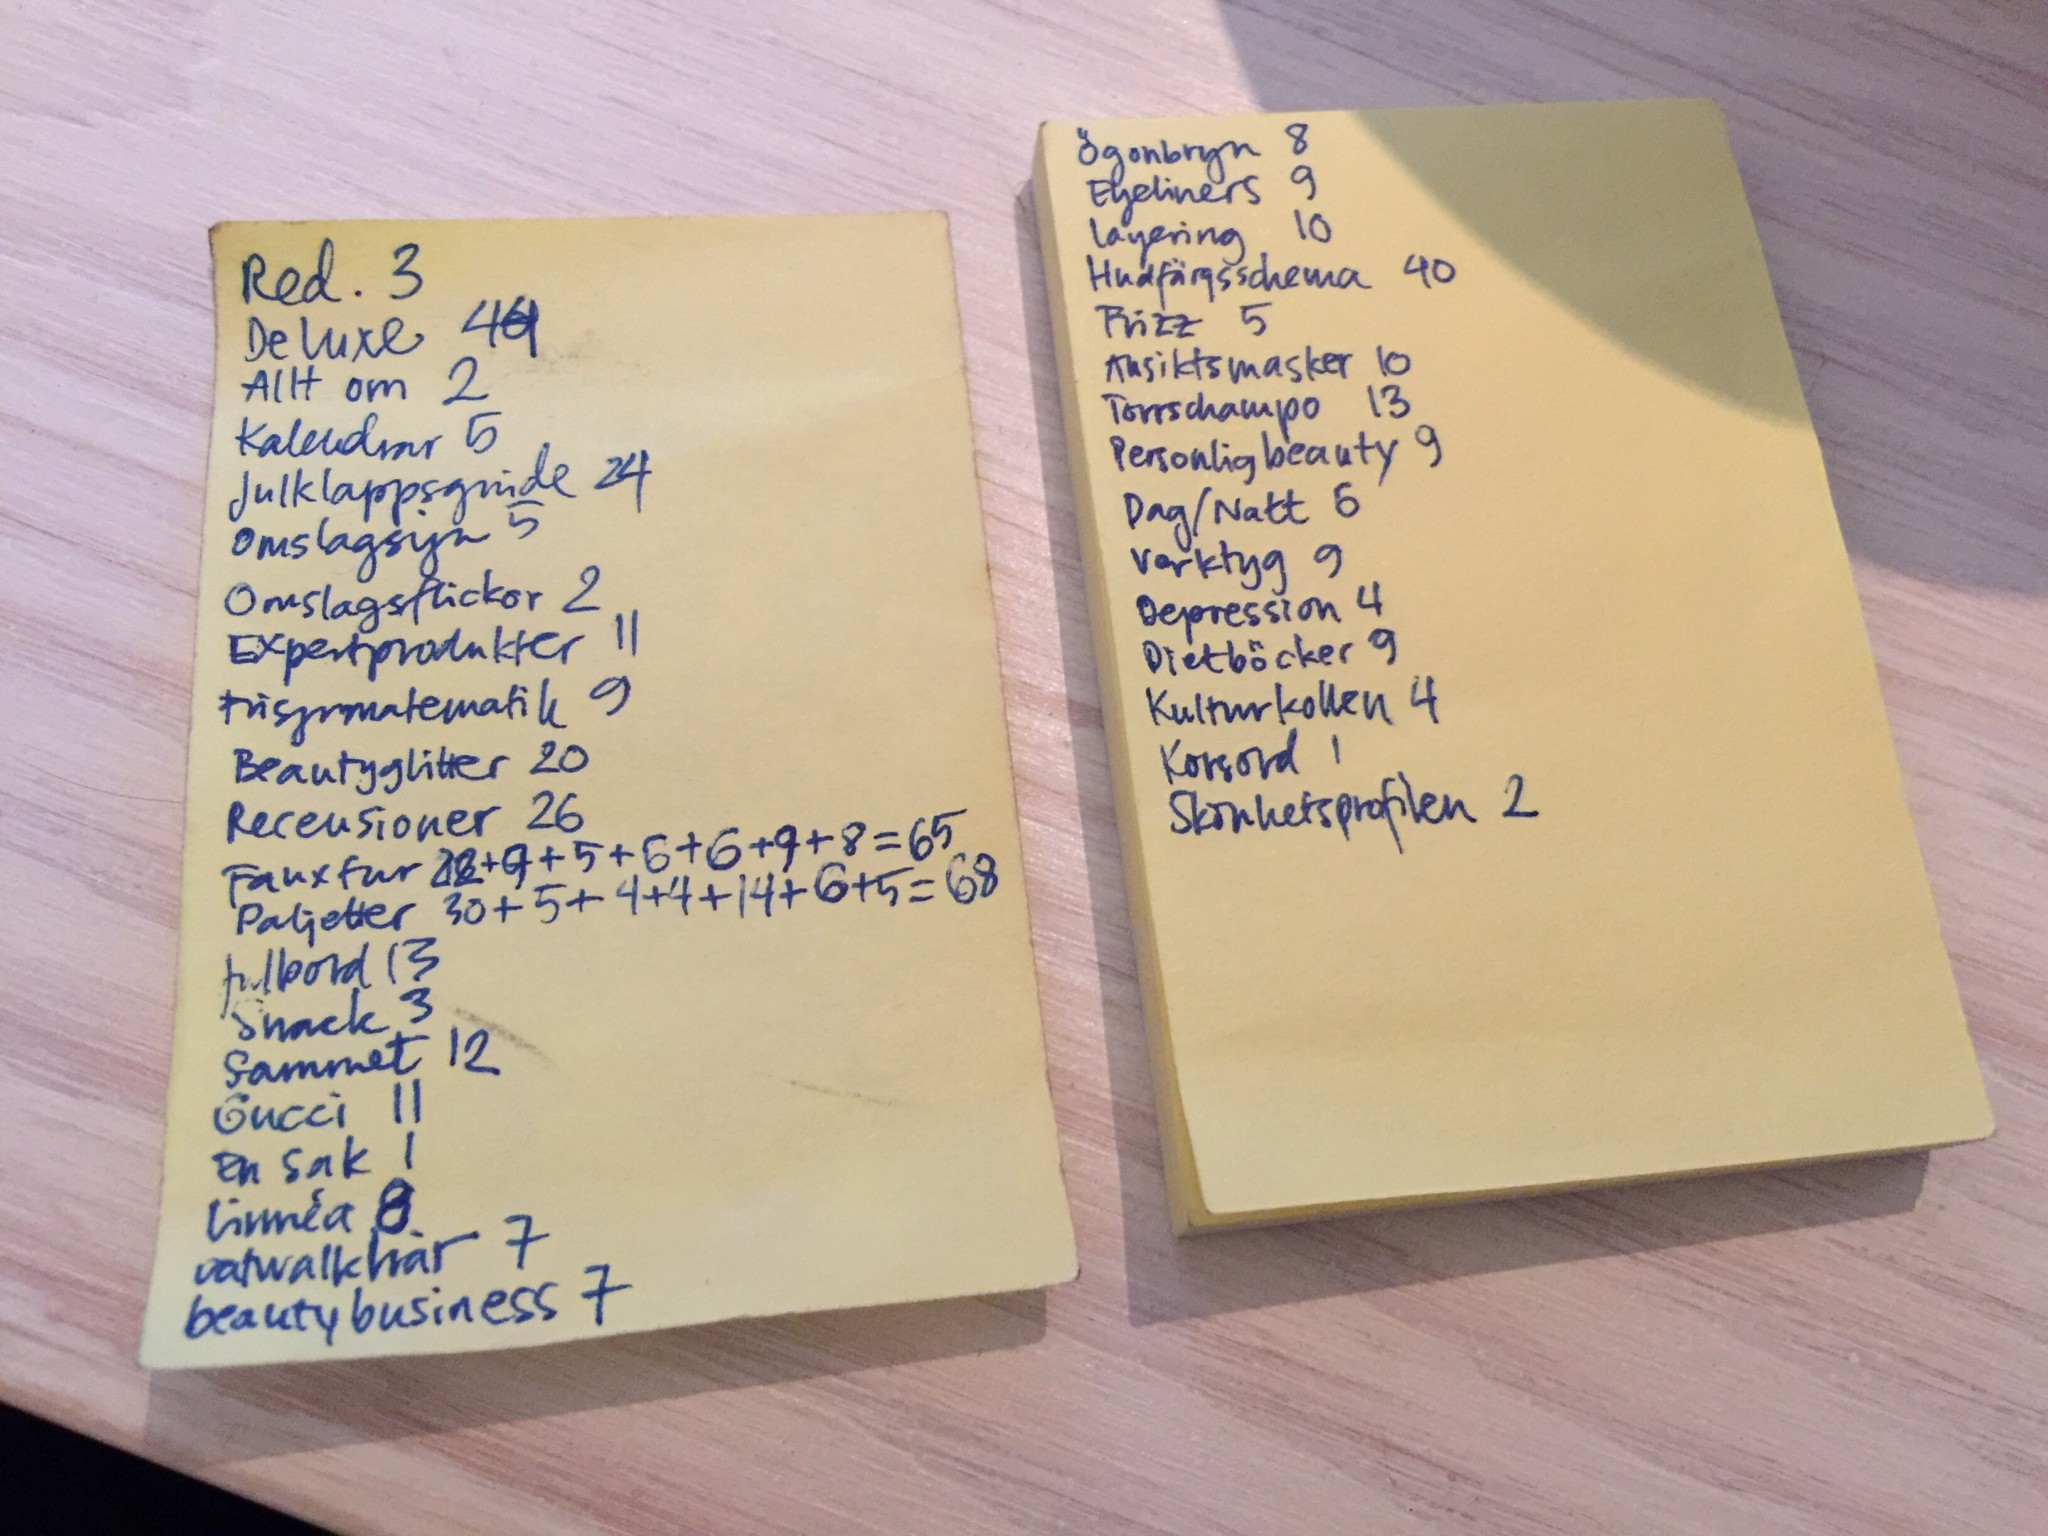 Red. 3
Deluxe 44
Allt om 2
Kalendrar 5
Julklappsguide 24
Omslagsyn 5
Omslagsflickor 2
Expertprodukter 11
frisyrmatematik 9
Beautyglitter 20
Recensioner 26
Fauxfur 22+9+5+6+6+9+8=65
Paljetter 30+5+4+4+14+6+5=68
julbord 13
Snack 3
Sammet 12
Gucci 11
En sak 1
linnéa 8
catwalkhår 7
beautybusiness 7
Ögonbryn 8
Eyeliners 9
Layering 10
Hudfärgsschema 40
Frizz 5
Ansiktsmasker 10
Torrschampo 13
Personlig beauty 9
Dag/Natt 6
Verktyg 9
Depression 4
Dietböcker 9
Kulturkollen 4
Korsord 1
Skönhetsprofilen 2